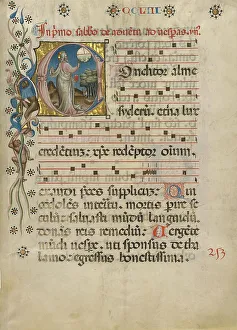 CCLIII
In primo sabbo de aduentu ad uesperas ym
Conditor alme
syderu. etna lux
credentiu. xpe redeptor oium.
exaudi pces supplicu. Qui
condoles interitu. mortis pire se
culu. saluasti mudu languidu
donans reis remediu. Uergete
mudi uespe. uti sponsus de tha
lamo. egressus honestissima.
253